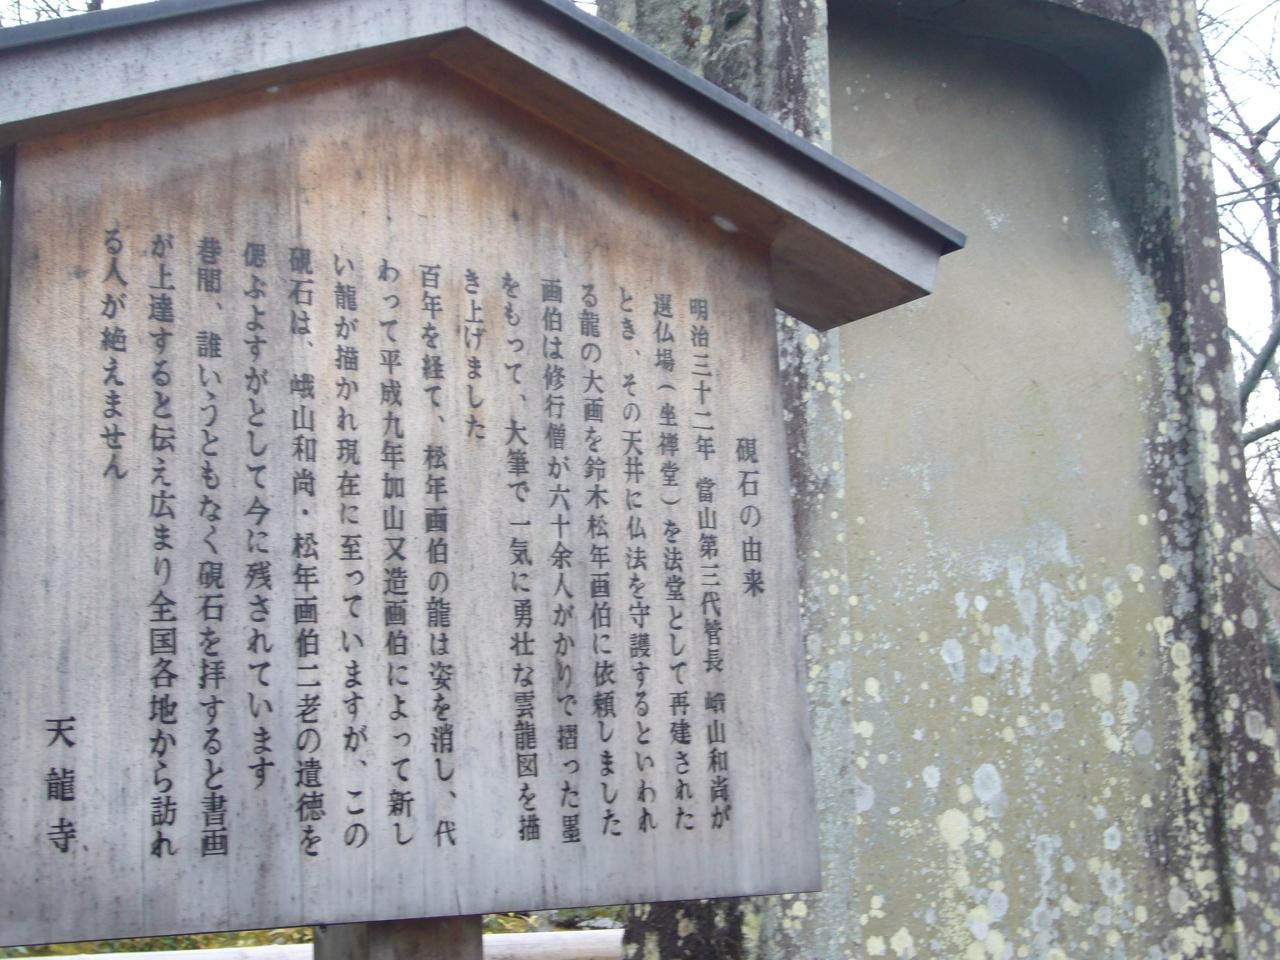 硯石の由来
明治三十二年 當山第三代管長 峨山和尚が
選仏場（坐禅堂）を法堂として再建された
とき、その天井に仏法を守護するといわれ
る龍の大画を鈴木松年画伯に依頼しました
画伯は修行僧が六十余人がかりで摺った墨
をもって、大筆で一気に勇壮な雲龍図を描
き上げました
百年を経て、松年画伯の龍は姿を消し、代
わって平成九年加山又造画伯によって新し
い龍が描かれ現在に至っていますが、この
硯石は、峨山和尚・松年画伯二老の遺徳を
偲ぶよすがとして今に残されています
巷間、誰いうともなく硯石を拝すると書画
が上達すると伝え広まり全国各地から訪れ
る人が絶えません
天龍寺